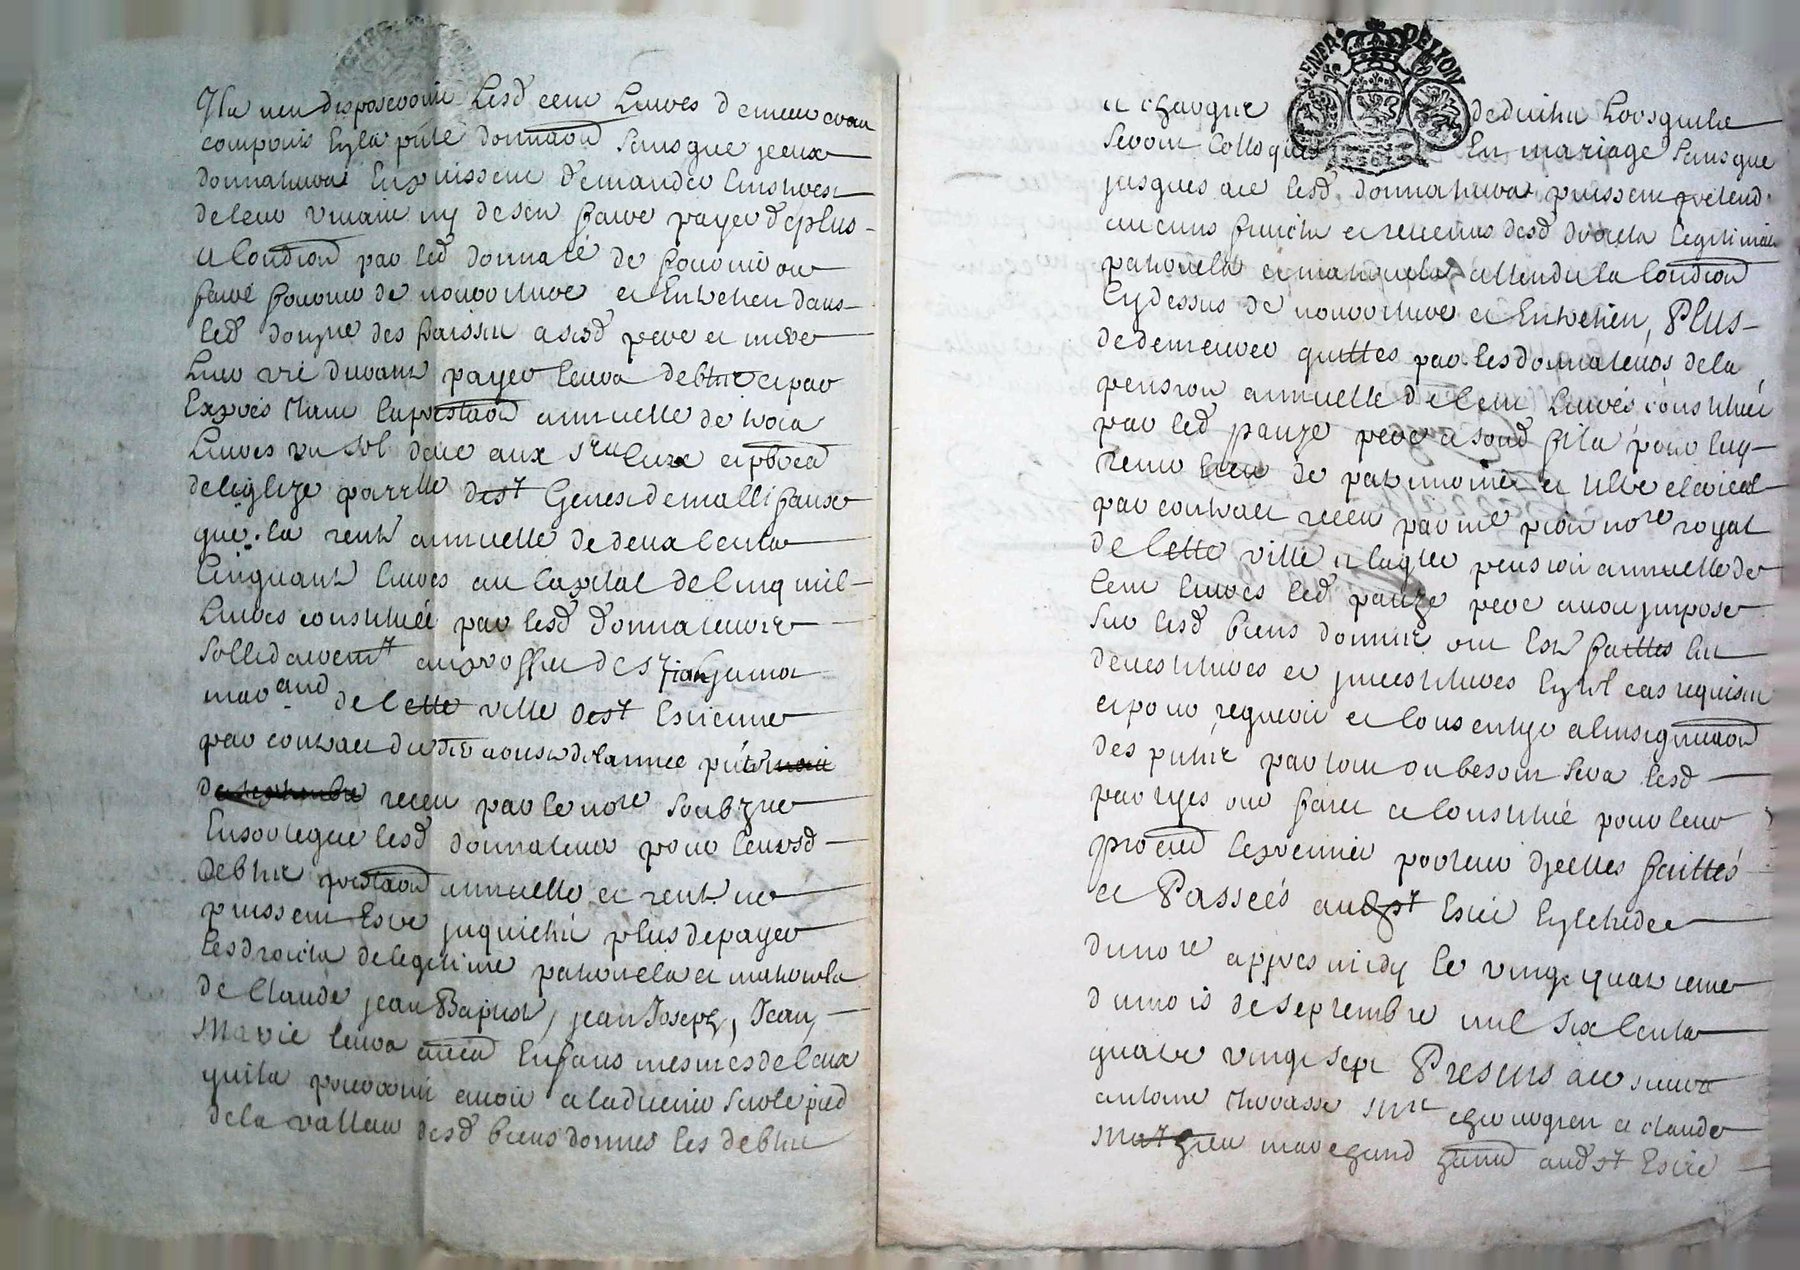 Ils nen disposeroint Lesd cent Livres demeureront
compris En la pnte donnaon sans que jceux
donnateurs En puissent demander linterest
de leur vivant ny de s'en faire payer de plus
a Condion par led donnaté de fournir ou
faire fournir de nourriture et Entretien dans
led domne des faissin a sesd pere et mere
Leur vie durant payer leurs debtes et par
Exprés tant la prestaon annuelle de trois
Livres un sol deue aux srs Curé et pbres
de leglize parrlle de st Genest de mallifaux
que la rente annuelle de deux Cents
Cinquante livres au Capital de Cinq mil
Livres constituée par lesd donnateurs
Sollidairemt au proffit de sr
marand de Cette ville de st Estienne
par contrat du aoust de lannee
receu par le nore soubzne
En sorte que lesd donnateurs pour leursd
debtes prestaon annuelle et rente ne
puissent Estre jnquietés plus de payer
Les droits de legitime paternels et maternels
de Claude jean Baptiste, jean Joseph, Jean,
Marie leurs Enfans mesmes de Ceux
quils pourront avoir a ladvenir sur le pied
de la valleur desd biens donnés les debtes
a chasque deduites Lors quils
seront Colloqués En mariage sans que
jusques ace lesd donnateurs puissent pretend
aucuns fruits et revenus desd droits legitimes
paternels et maternels attendu la Condion
Cy dessus de nourriture et Entretien, Plus
de demeurer quittes par les donnateurs de la
pension annuelle de Cent Livres constituée
par led pauze pere a sond fils pour luy
tenir lieu de patrimoine et tiltre clerical
par contrat receu par me nore royal
de Cette ville a laqlle pension annuelle de
Cent livres led pauze pere avoit jmposé
sur lesd biens donnés ont Esté faittes les
devestitures et jnvestitures En tel cas requises
et pour requerir et Consentir a linsignuaon
des pntes par tout ou besoin sera lesd
partyes ont fait et Constitué pour leur
procur le premier porteur djcelles faittes
et Passéés aud st Estie En letude
du nore appres midy le vingt quatrieme
du mois de septembre mil six Cents
quatre vingt sept Presens a ce sieurs
antoine Thovasse Mre chirurgien et claude
Mathieu marchand aud st Estie
GENER DE LION